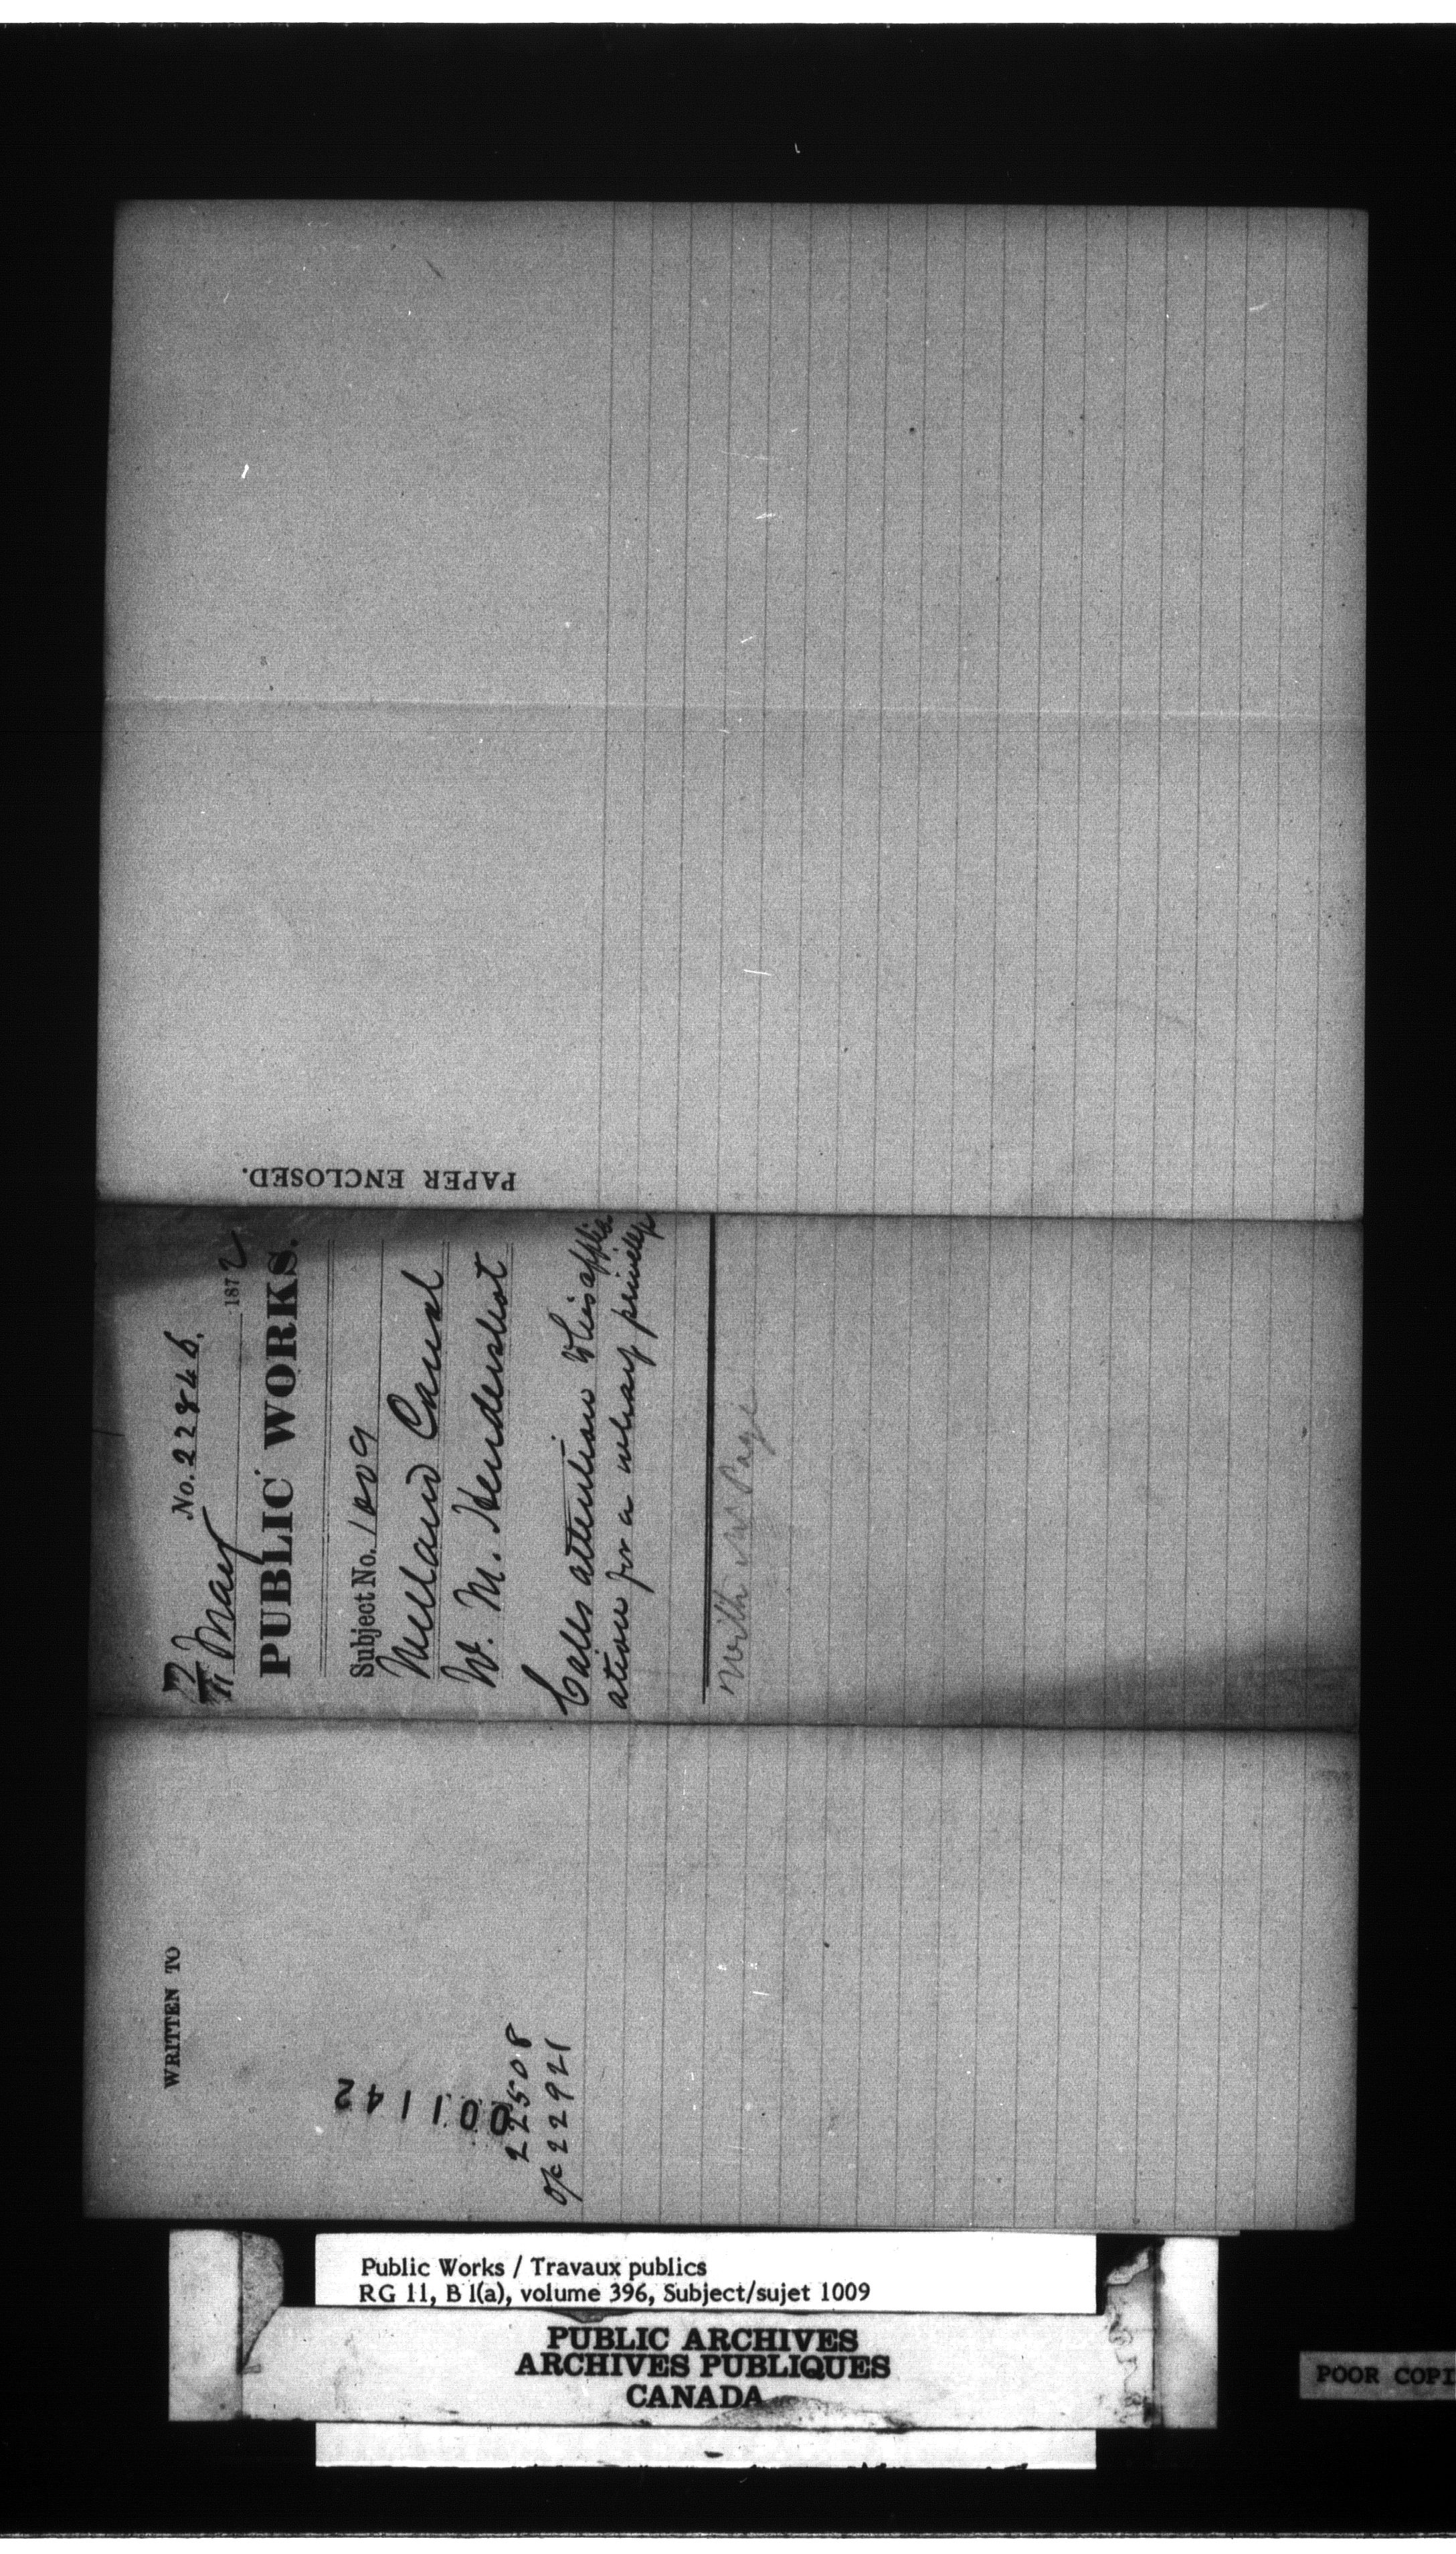 PAPER ENCLOSED.
No. 22846.
May 1872
PUBLIC WORKS.
Subject No. 1009
Welland Canal
W. M. Hendershot
Calls attention to his applic
ation for a wharf privilege
With Mr Page
WRITTEN TO
001142
22508
22921
Public Works / Travaux publics
RG 11, B 1(a), volume 396, Subject/sujet 1009
PUBLIC ARCHIVES
ARCHIVES PUBLIQUES
CANADA
POOR COPI